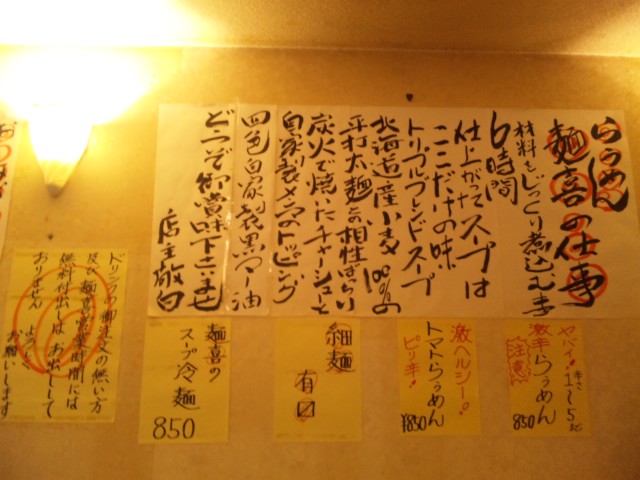 らぅめん
麺喜の仕事
材料をじっくり煮込む事
6時間
仕上がったスープは
ここだけの味
トリプルブレンドスープ
北海道産小麦100%の
平打太麺との相性ばっちり
炭火で焼いたチャーシューと
自家製メンマのトッピング
四色自家製黒マー油
どうぞ御賞味下さいませ
店主敬白
ヤバイ!辛さ1~5まで
激辛らぅめん
注意
850
激ヘルシー!
トマトらぅめん
ピリ辛!
¥850
細麺
有
麺喜の
スープ冷麺
850
ドリンクの御注文の無い方
及び麺喜営業時間には
無料付出しはお出しして
おりません
よろしく
お願いします